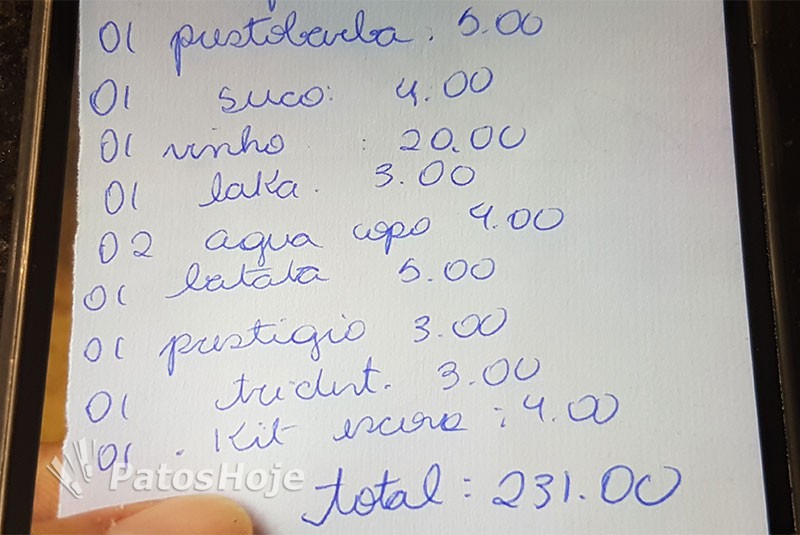 01 prestobarba. 5.00
01 suco: 4.00
01 vinho : 20.00
01 laka. 3.00
02 agua copo 4.00
01 batata 5.00
01 prestigio 3.00
01 trident. 3.00
01 . Kit escova : 4.00
PatosHoje
total : 231.00